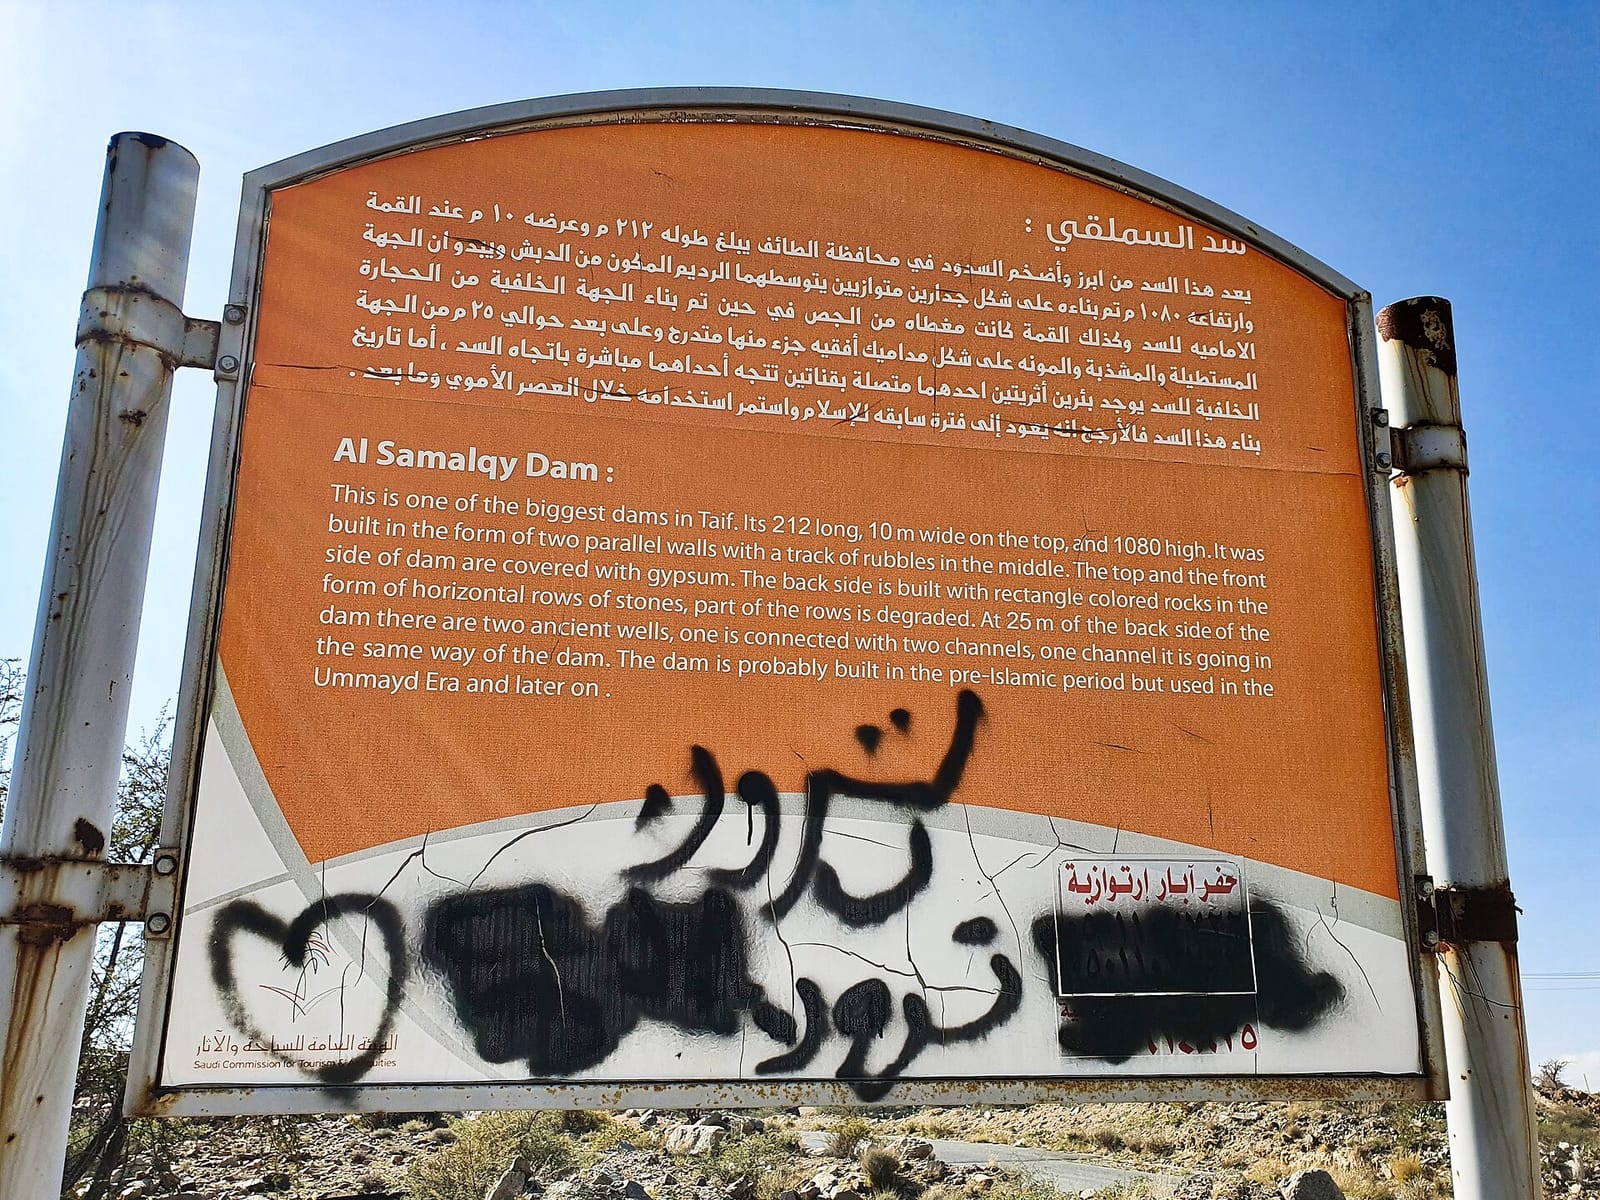 سد السملقي :
يعد هذا السد من ابرز وأضخم السدود في محافظة الطائف يبلغ طوله ٢١٢ م وعرضه ١٠ م عند القمة
وارتفاعه ١٠٨٠ م تم بناءه على شكل جدارين متوازيين يتوسطهما الرديم المكون من الدبش ويبدو أن الجهة
الاماميه للسد وكذلك القمة كانت مغطاه من الجص في حين تم بناء الجهة الخلفية من الحجارة
المستطيلة والمشذبة والمونه على شكل مداميك أفقيه جزء منها متدرج وعلى بعد حوالي ٢٥ م من الجهة
الخلفية للسد يوجد بئرين أثريتين احدهما متصلة بقناتين تتجه أحداهما مباشرة باتجاه السد ، أما تاريخ
بناء هذا السد فالأرجح انه يعود إلى فترة سابقه للإسلام واستمر استخدامه خلال العصر الأموي وما بعد .
Al Samalqy Dam :
This is one of the biggest dams in Taif. Its 212 long, 10 m wide on the top, and 1080 high. It was
built in the form of two parallel walls with a track of rubbles in the middle. The top and the front
side of dam are covered with gypsum. The back side is built with rectangle colored rocks in the
form of horizontal rows of stones, part of the rows is degraded. At 25 m of the back side of the
dam there are two ancient wells, one is connected with two channels, one channel it is going in
the same way of the dam. The dam is probably built in the pre-Islamic period but used in the
Ummayd Era and later on .
حفر آبار إرتوازية
الهيئة العامة للسياحة والآثار
Saudi Commission for Tourism & Antiquities